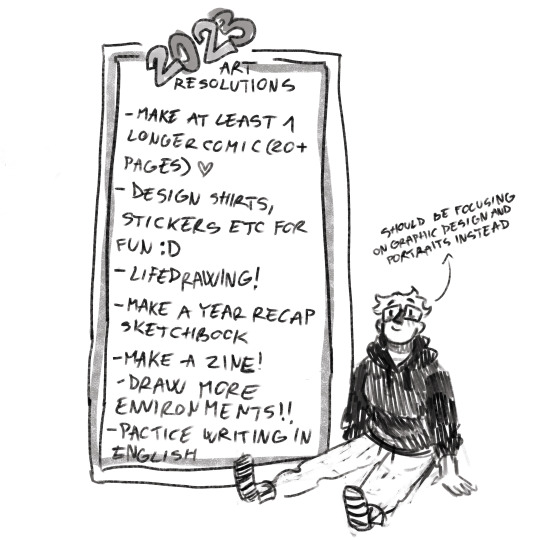 2023
ART
RESOLUTIONS
-MAKE AT LEAST 1
LONGER COMIC (20+
PAGES) ♡
- DESIGN SHIRTS,
STICKERS ETC FOR
FUN :D
-LIFEDRAWING!
-MAKE A YEAR RECAP
SKETCHBOOK
-MAKE A ZINE!
-DRAW MORE
ENVIRONMENTS!!
-PACTICE WRITING IN
ENGLISH
SHOULD BE FOCUSING
ON GRAPHIC DESIGN AND
PORTRAITS INSTEAD